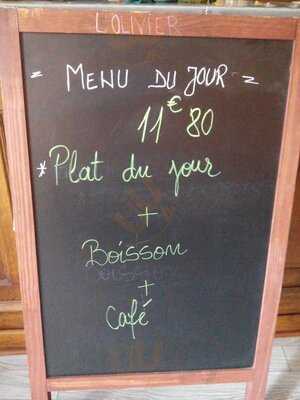 L'OLIVIER
~ MENU DU JOUR ~
11€80
* Plat du jour
+
Boisson
+
Café